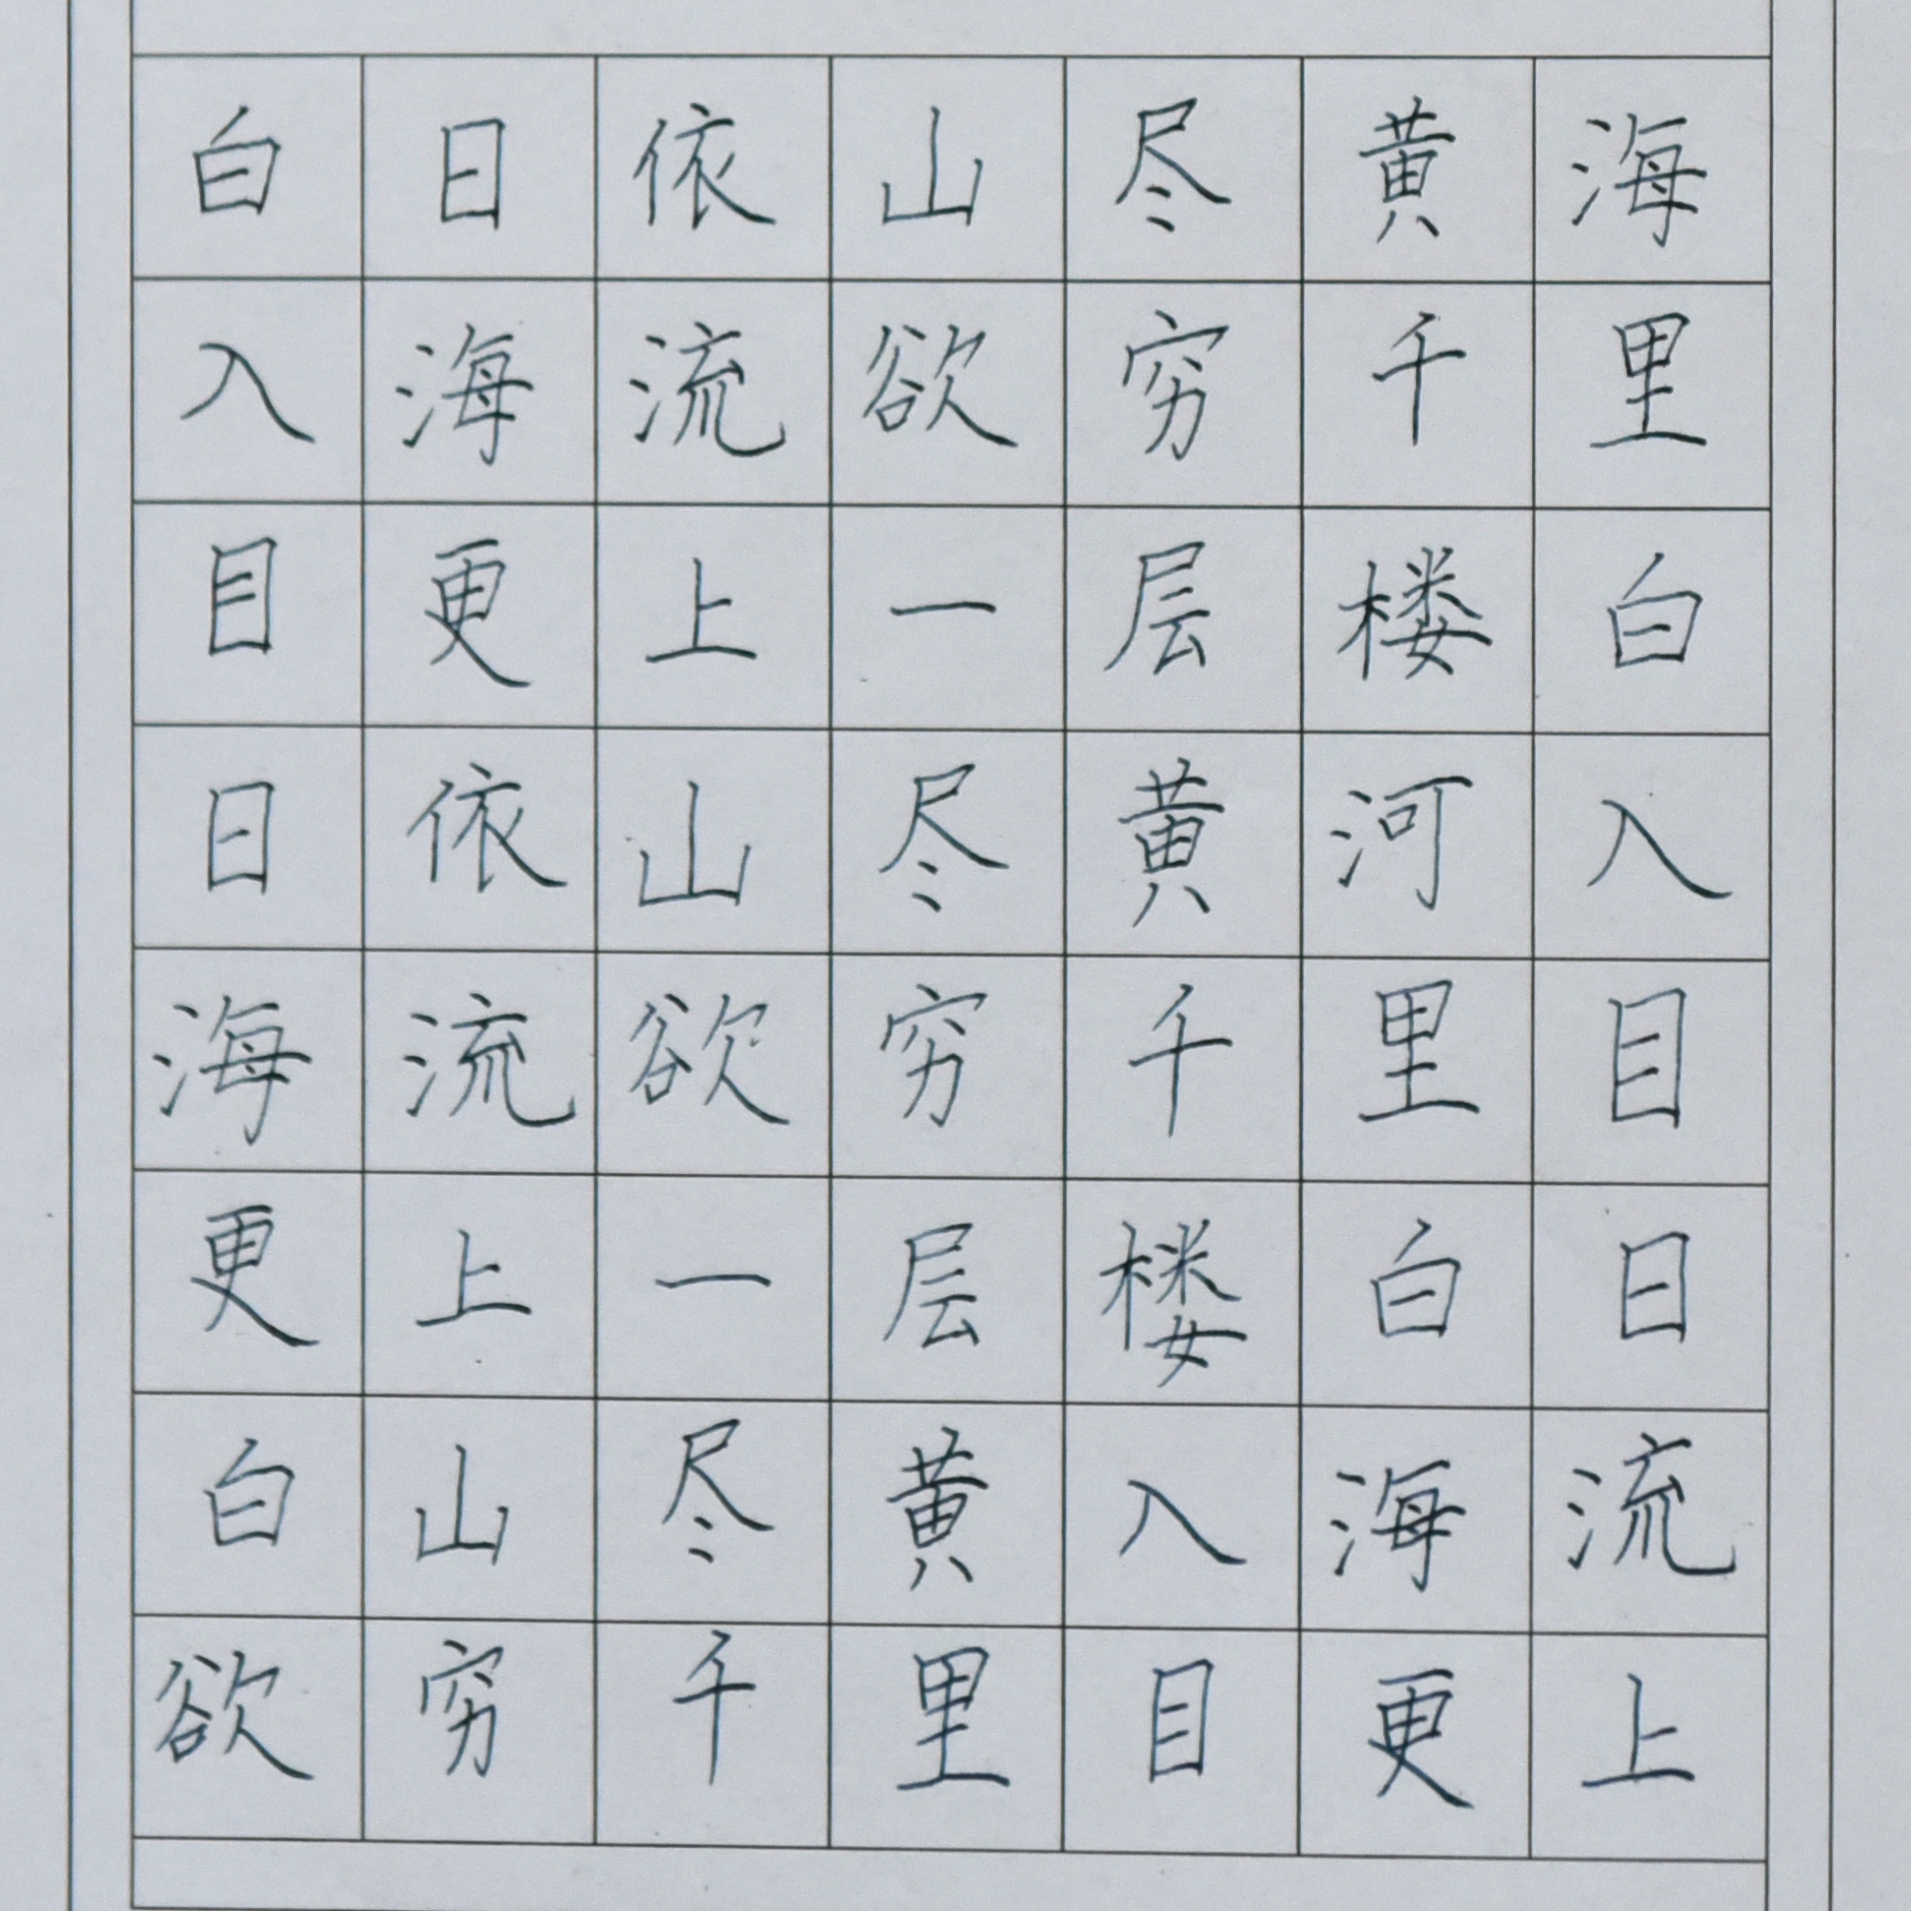 白日依山尽黄海
入海流欲穷千里
目更上一层楼白
日依山尽黄河入
海流欲穷千里目
更上一层楼白日
白山尽黄入海流
欲穷千里目更上